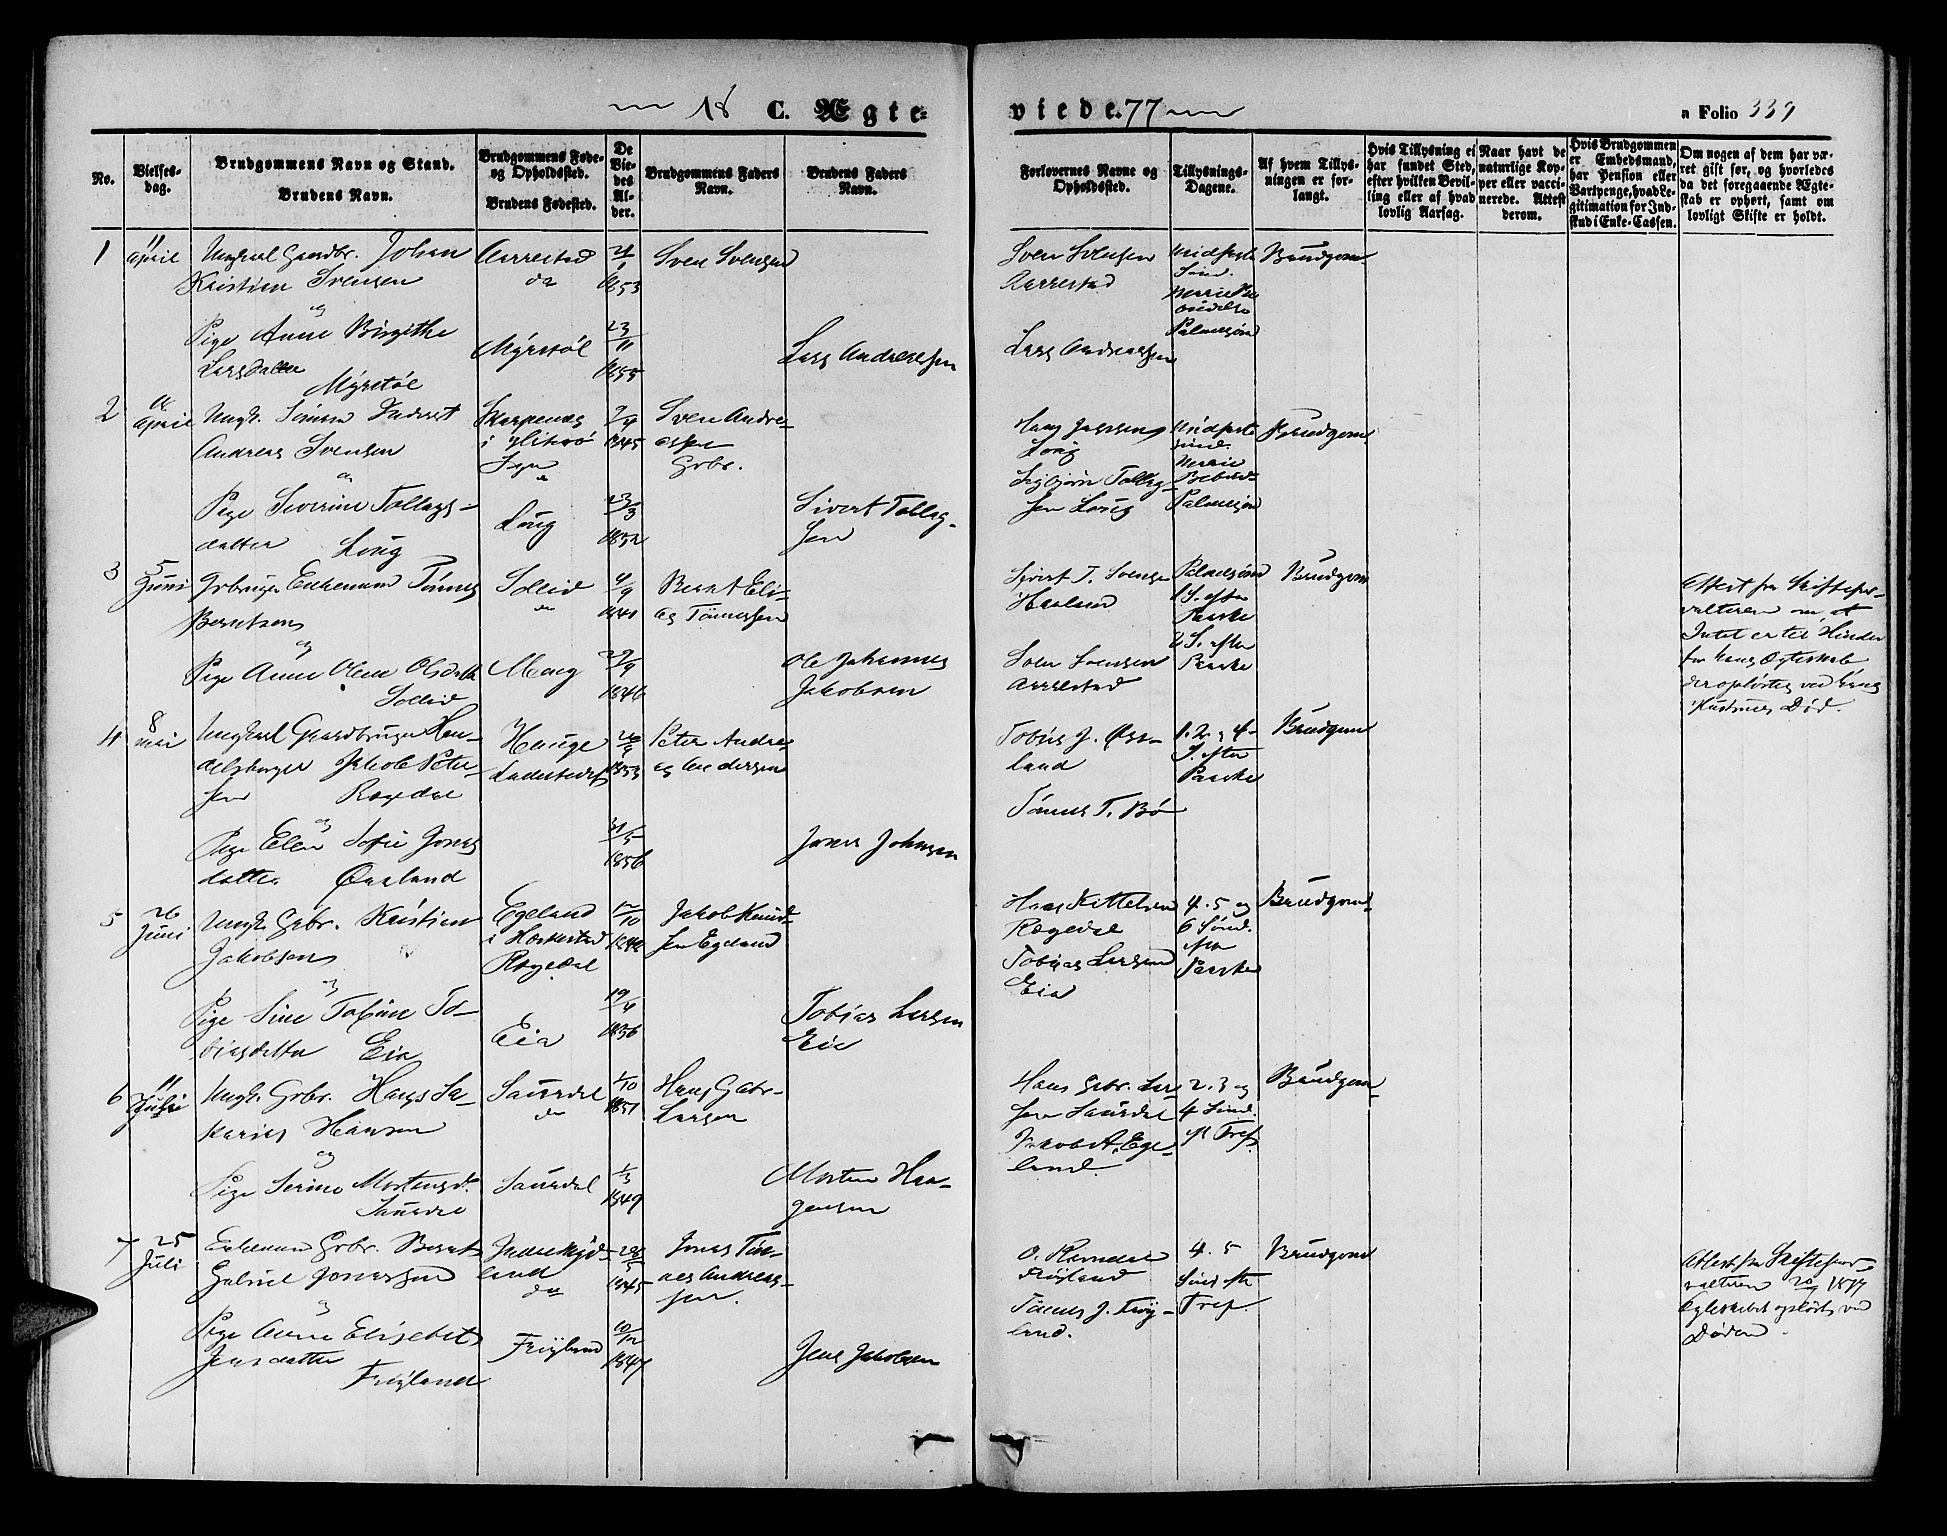 18 C. Ægte-
viede. 77
a Folio 339
No.
Vielses-
dag.
Brudgommens Navn og Stand.
Brudens Navn.
Brudgommens Føde-
og Opholdssted.
Brudens Fødested.
De
Vie-
des
Al-
der.
Brudgommens Faders
Navn.
Brudens Faders
Navn.
Forlovernes Navne og
Opholdssted.
Tillysnings-
Dagene.
Af hvem Tillys-
ningen er for-
langt.
Hvis Tillysning ei
har fundet Sted,
efter hvilken Bevil-
ling eller af hvad
lovlig Aarsag.
Naar havt de
naturlige Kop-
per eller vacci-
nerede. Attest
derom.
Hvis Brudgommen
er Embedsmand,
har Pension eller
Vartpenge, hvad Le-
gitimation for Ind-
skud i Enke-Cassen.
Om nogen af dem har væ-
ret gift før, og hvorledes
da det foregaaende Ægte-
skab er ophørt, samt om
lovligt Skifte er holdt.
1
11
April
Ungkarl Gaardbr. Johan
Kristian Svensen
og
Pige Anne Birgithe
Larsdatter
Myrstøl
Aarrestad
do
Myrstøl
1853
23/11
1855
Sven Svensen
Lars Andreassen
Sven Svensen
Aarrestad
Lars Andreassen
Midfaste
Sønd.
Marie Be
budelse
Palmesønd
Brudgom
2
April
Ungk.
Andreas Svensen
og
Pige Severine Tollags-
datter Loug
i Hitterø
Sogn
Loug
1845
23/3
1852
Sven Andre-
assen
Grbr.
Sivert Tollag-
sen
Loug
Sigbjørn Tollag-
sen Loug
Midfaste
Sønd.
Marie
Bebud-
Palmesøn
Brudgom
3
5
Juni
Grbruger Enkemand Tønnes
Berntsen
og
Pige Anne Olene Olsdatter
Sollid
Sollid
Moug
4/9
1841
29/9
1846
Bernt Eli-
as Tønnessen
Ole Johannes
Jakobsen
Sivert T. Svensen
Sven Svensen
Aarrestad
Palmesønd
1 S. efter
Paaske
2 S. efter
Paaske
Brudgom
Attest fra Skiftefor-
valteren om, at
Intet er til Hinder
for hans Ægteskab
der opløstes ved hans
Hustrues Død.
4
8
Mai
Ungkarl Gaardbruger Han-
delsborger Jakob Peter-
sen Rægedal
og
Pige Elen Sofie Jonas
datter Øvrland
Hauge
Ladested
1853
31/5
1856
Peter Andre
as Andersen
Jonas Johnsen
Tobias J. Øvr-
land
Tønnes T. Bø
1. 2. og 4-
S. efter
Paaske
Brudgom
5
26
Juni
Ungk. Grbr. Kristian
Jakobsen
og
Pige Sine Tobine To-
biasdatter Eia
Egeland
i Heskestad
Rægedal
Eia
12/10
19/4
1856
Jakob Knud-
sen Egeland
Tobias Larsen
Eie
Hans Kittelsen
Rægedal
Tobias Larsen
Eia
4. 5 og
6 Sønd.
efter
Paaske
Brudgom
6
11
Juli
Ungk. Grbr. Hans Sa-
karias Hansen
og
Pige Serine Mortensd.
Saurdal
Saurdal
do
Saurdal
1/10
1851
1/3
1849
Hans Gabr.
Larsen
Morten Haa-
gensen
Hans Gabr. Lar-
sen Saurdal
Jakob A. Ege-
land.
2. 3 og
4 Sønd.
eft Tref.
Brudgom
7
25
Juli
Enkemand Grbr. Bernt
Gabriel Jonassen
og
Pige Anne Elisabet
Jensdatter
Frøyland
land
do
Frøyland
1845
10/12
1847
Jonas Tøn-
nes Andreas-
sen.
Jens Jakobsen
Frøyland
Tønnes J. Frøy-
land.
4. 5
Sønd eft
Tref.
Brudgom
Attest fra Skiftefor-
valteren 1877
Ægteskabet opløst ved
Døden.